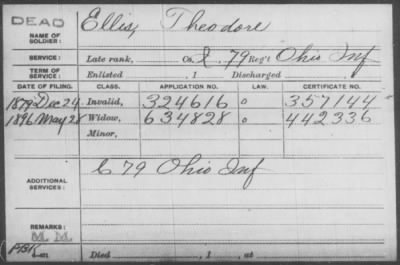 DEAD
NAME OF SOLDIER: Ellis, Theodore
SERVICE: Late rank, Co. I, 79 Reg't Ohio Inf
TERM OF SERVICE: Enlisted , 1 Discharged , 1
DATE OF FILING. CLASS. APPLICATION NO. LAW. CERTIFICATE NO.
1879 Dec 24 Invalid, 324616 0 357144
1896 May 28 Widow, 634828 0 442336
Minor,
ADDITIONAL SERVICES: C 79 Ohio Inf
REMARKS:
M. M.
Died , 1 , at